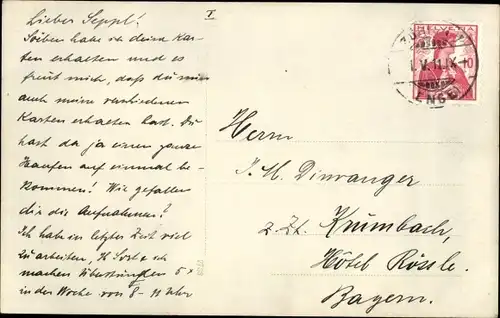 Lieber Seppl!
I
Soeben habe ich deine Kar-
ten erhalten und es
freut mich, dass du nun
auch meine verschiedenen
Karten erhalten hast. Du
hast da ja einen ganzen
Haufen auf einmal be-
kommen! Wie gefallen
dir die Aufnahmen?
Ich habe in letzter Zeit viel
zu arbeiten, H. &
machen Überstunden 5 x
in der Woche von 8 - 11 Uhr
HELVETIA
10
V. 11. IX
(ENGE)
Herrn
J. M. Dinranger
z. Zt. Krumbach,
Hôtel Rössle.
Bayern.